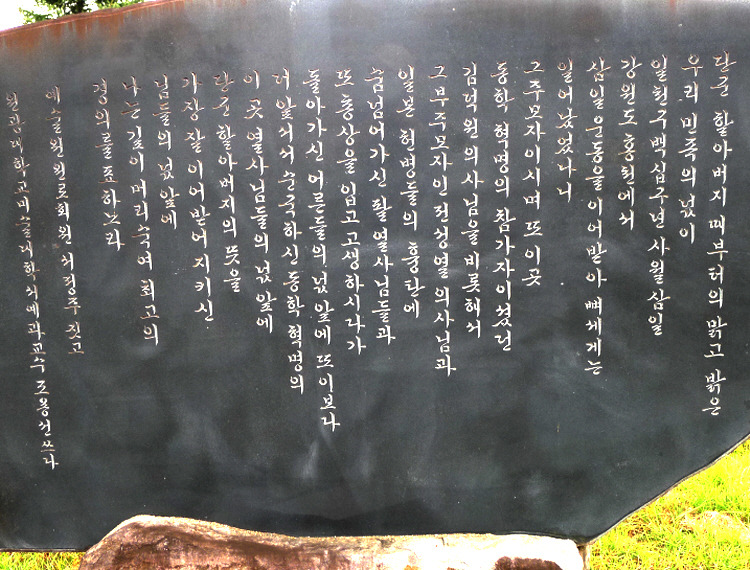 단군 할아버지 때부터의 맑고 밝은
우리 민족의 넋이
일천구백십구년 사월 삼일
강원도 홍천에서
삼일 운동을 이어받아 뼈세게는
일어났었나니
그 주모자이시며 또 이곳
동학 혁명의 참가자이셨던
김덕원 의사님을 비롯해서
그 부주모자인 전성열 의사님과
일본 헌병들의 흉탄에
숨넘어가신 팔 열사님들과
또 총상을 입고 고생하시다가
돌아가신 어른들의 넋 앞에 또 이보다
더 앞서서 순국하신 동학 혁명의
이 곳 열사님들의 넋 앞에
단군 할아버지의 뜻을
가장 잘 이어 받어 지키신
님들의 넋 앞에
나는 깊이 머리 숙여 최고의
경의를 표하노라
예술원 원로회원 서정주 짓고
원광대학교 미술대학 서예과 교수 조용선 쓰다